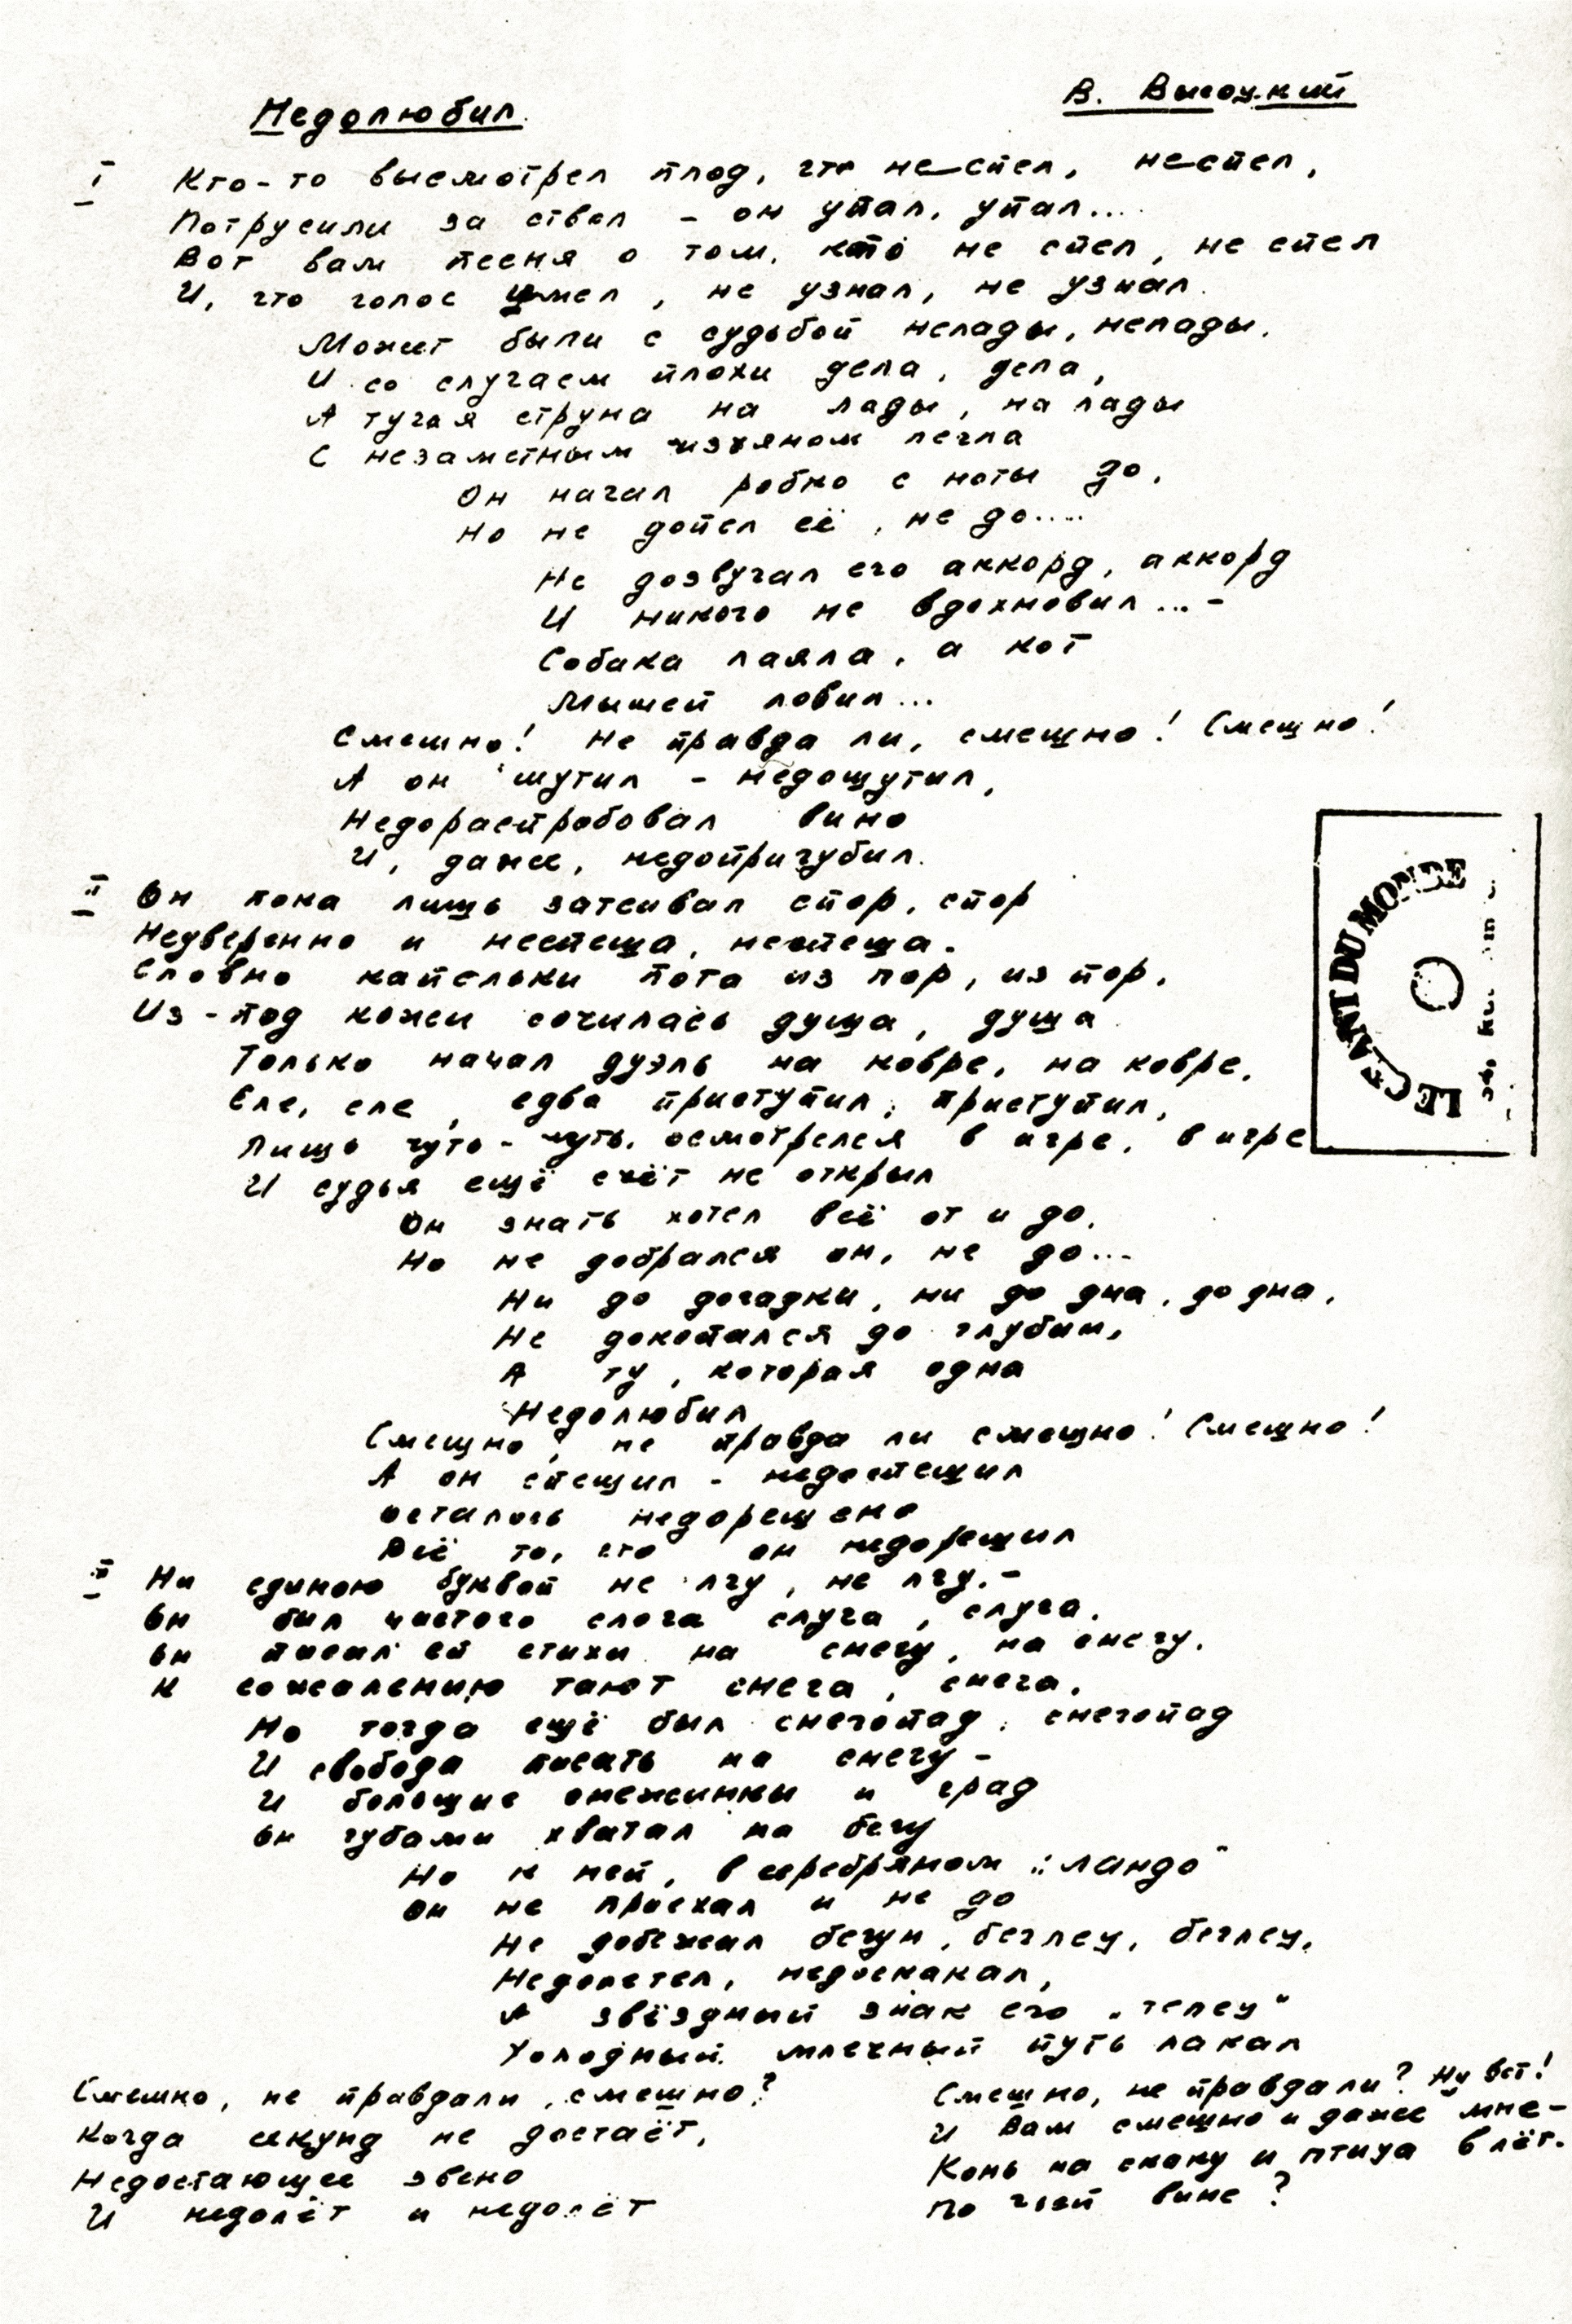 Недолюбил
В. Высоцкий
I Кто-то высмотрел плод, что неспел, неспел,
Потрусили за ствол - он упал, упал...
Вот вам песня о том, кто не спел, не спел
И, что голос имел, не узнал, не узнал.
Может были с судьбой нелады, нелады,
И со случаем плохи дела, дела,
А тугая струна на лады, на лады
С незаметным изъяном легла
Он начал робко с ноты до,
Но не допел её, не до....
Не дозвучал его аккорд, аккорд
И никого не вдохновил... -
Собака лаяла, а кот
Мышей ловил...
Смешно! Не правда ли, смешно! Смешно!
А он шутил - недошутил,
Недораспробовал вино
И, даже, недопригубил.
II Он пока лишь затеивал спор, спор
Неуверенно и неспеша, неспеша.
Словно капельки пота из пор, из пор,
Из-под кожи сочилась душа, душа
Только начал дуэль на ковре, на ковре,
Еле, еле, едва приступил, приступил,
Лишь чуть-чуть осмотрелся в игре, в игре
И судья ещё счёт не открыл
Он знать хотел всё от и до,
Но не добрался он, не до...
Ни до догадки, ни до дна, до дна,
Не докопался до глубин,
А ту, которая одна
Недолюбил
Смешно, не правда ли смешно! Смешно!
А он спешил - недоспешил
Осталось недорешено
Всё то, что он недорешил
III Ни единою буквой не лгу, не лгу. -
Он был чистого слога слуга, слуга.
Он писал ей стихи на снегу, на снегу,
К сожалению тают снега, снега.
Но тогда ещё был снегопад, снегопад
И свобода писать на снегу -
И большие снежинки и град
Он губами хватал на бегу
Но к ней, в серебряном "ландо"
Он не приехал и не до
Не добежал бегун, беглец, беглец,
Недолетел, недоскакал,
А звёздный знак его "телец"
Холодный млечный путь лакал
Смешно, не правдали, смешно?
Когда секунд не достаёт,
Недостающее звено
И недолёт и недолёт
Смешно, не правдали? Ну вот!
И Вам смешно и даже мне -
Конь на скаку и птица влёт.
По чьей вине?
LE CHANT DU MONDE